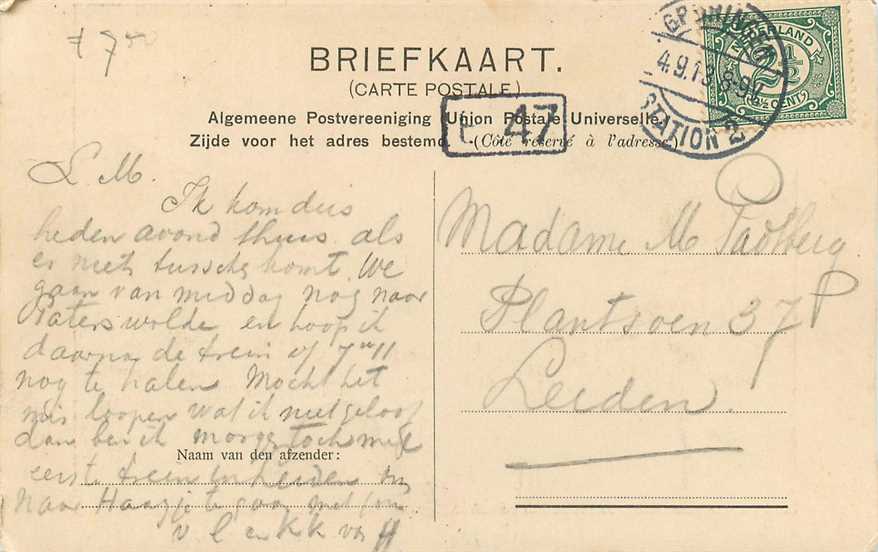 £ 7⁵⁰
BRIEFKAART.
(CARTE POSTALE)
Algemeene Postvereeniging (Union Postale Universelle.)
Zijde voor het adres bestemd. (Côté réservé à l'adresse.)
47
GRONINGEN
4.9.13.8-9V
STATION 2
NEDERLAND
2½
2½ CENT
L. M.
Ik kom dus
heden avond thuis als
er niets tusschen komt. We
gaan van middag nog naar
Paterswolde en hoop ik
daarna de trein of 7
nog te halen. Mocht het
mis loopen wat ik niet geloof
dan ben ik morgen toch met
eerste trein in Leiden
naar Haagje te gaan met
v l en K k van
Naam van den afzender:
Madame M Padtberg
Plantsoen 37
Leiden.